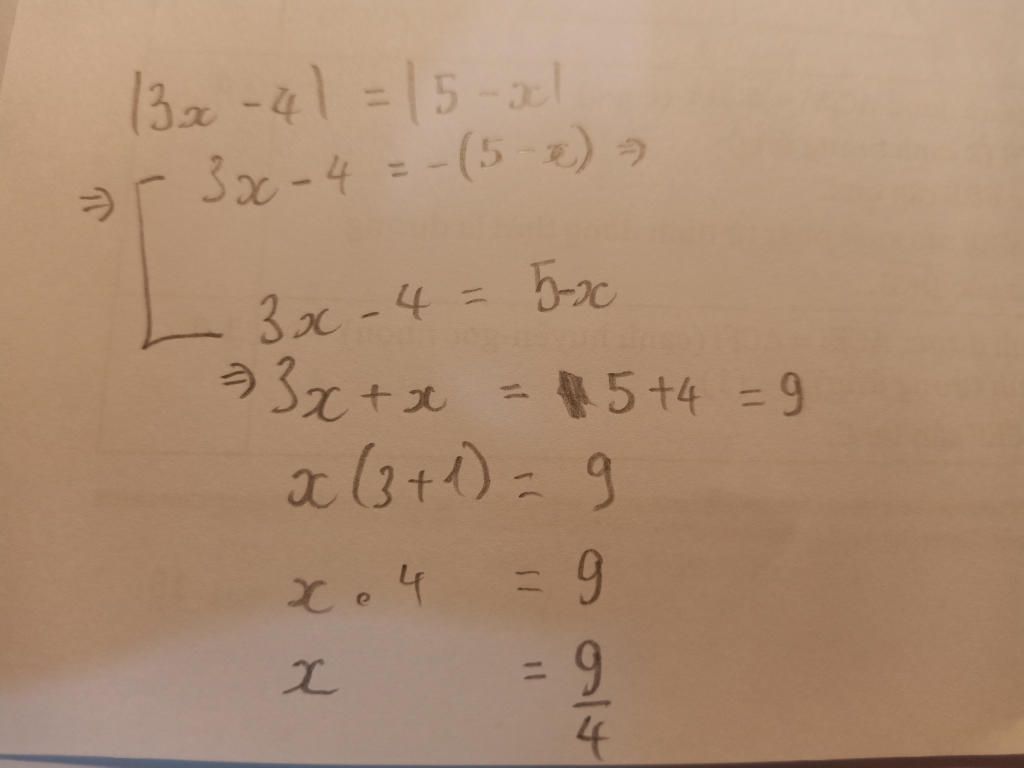 |3x - 4| = |5 - x|
⇒ [ 3x - 4 = -(5 - x) ⇒
3x - 4 = 5-x
⇒ 3x + x = 5 + 4 = 9
x (3+1) = 9
x . 4 = 9
x = 9/4